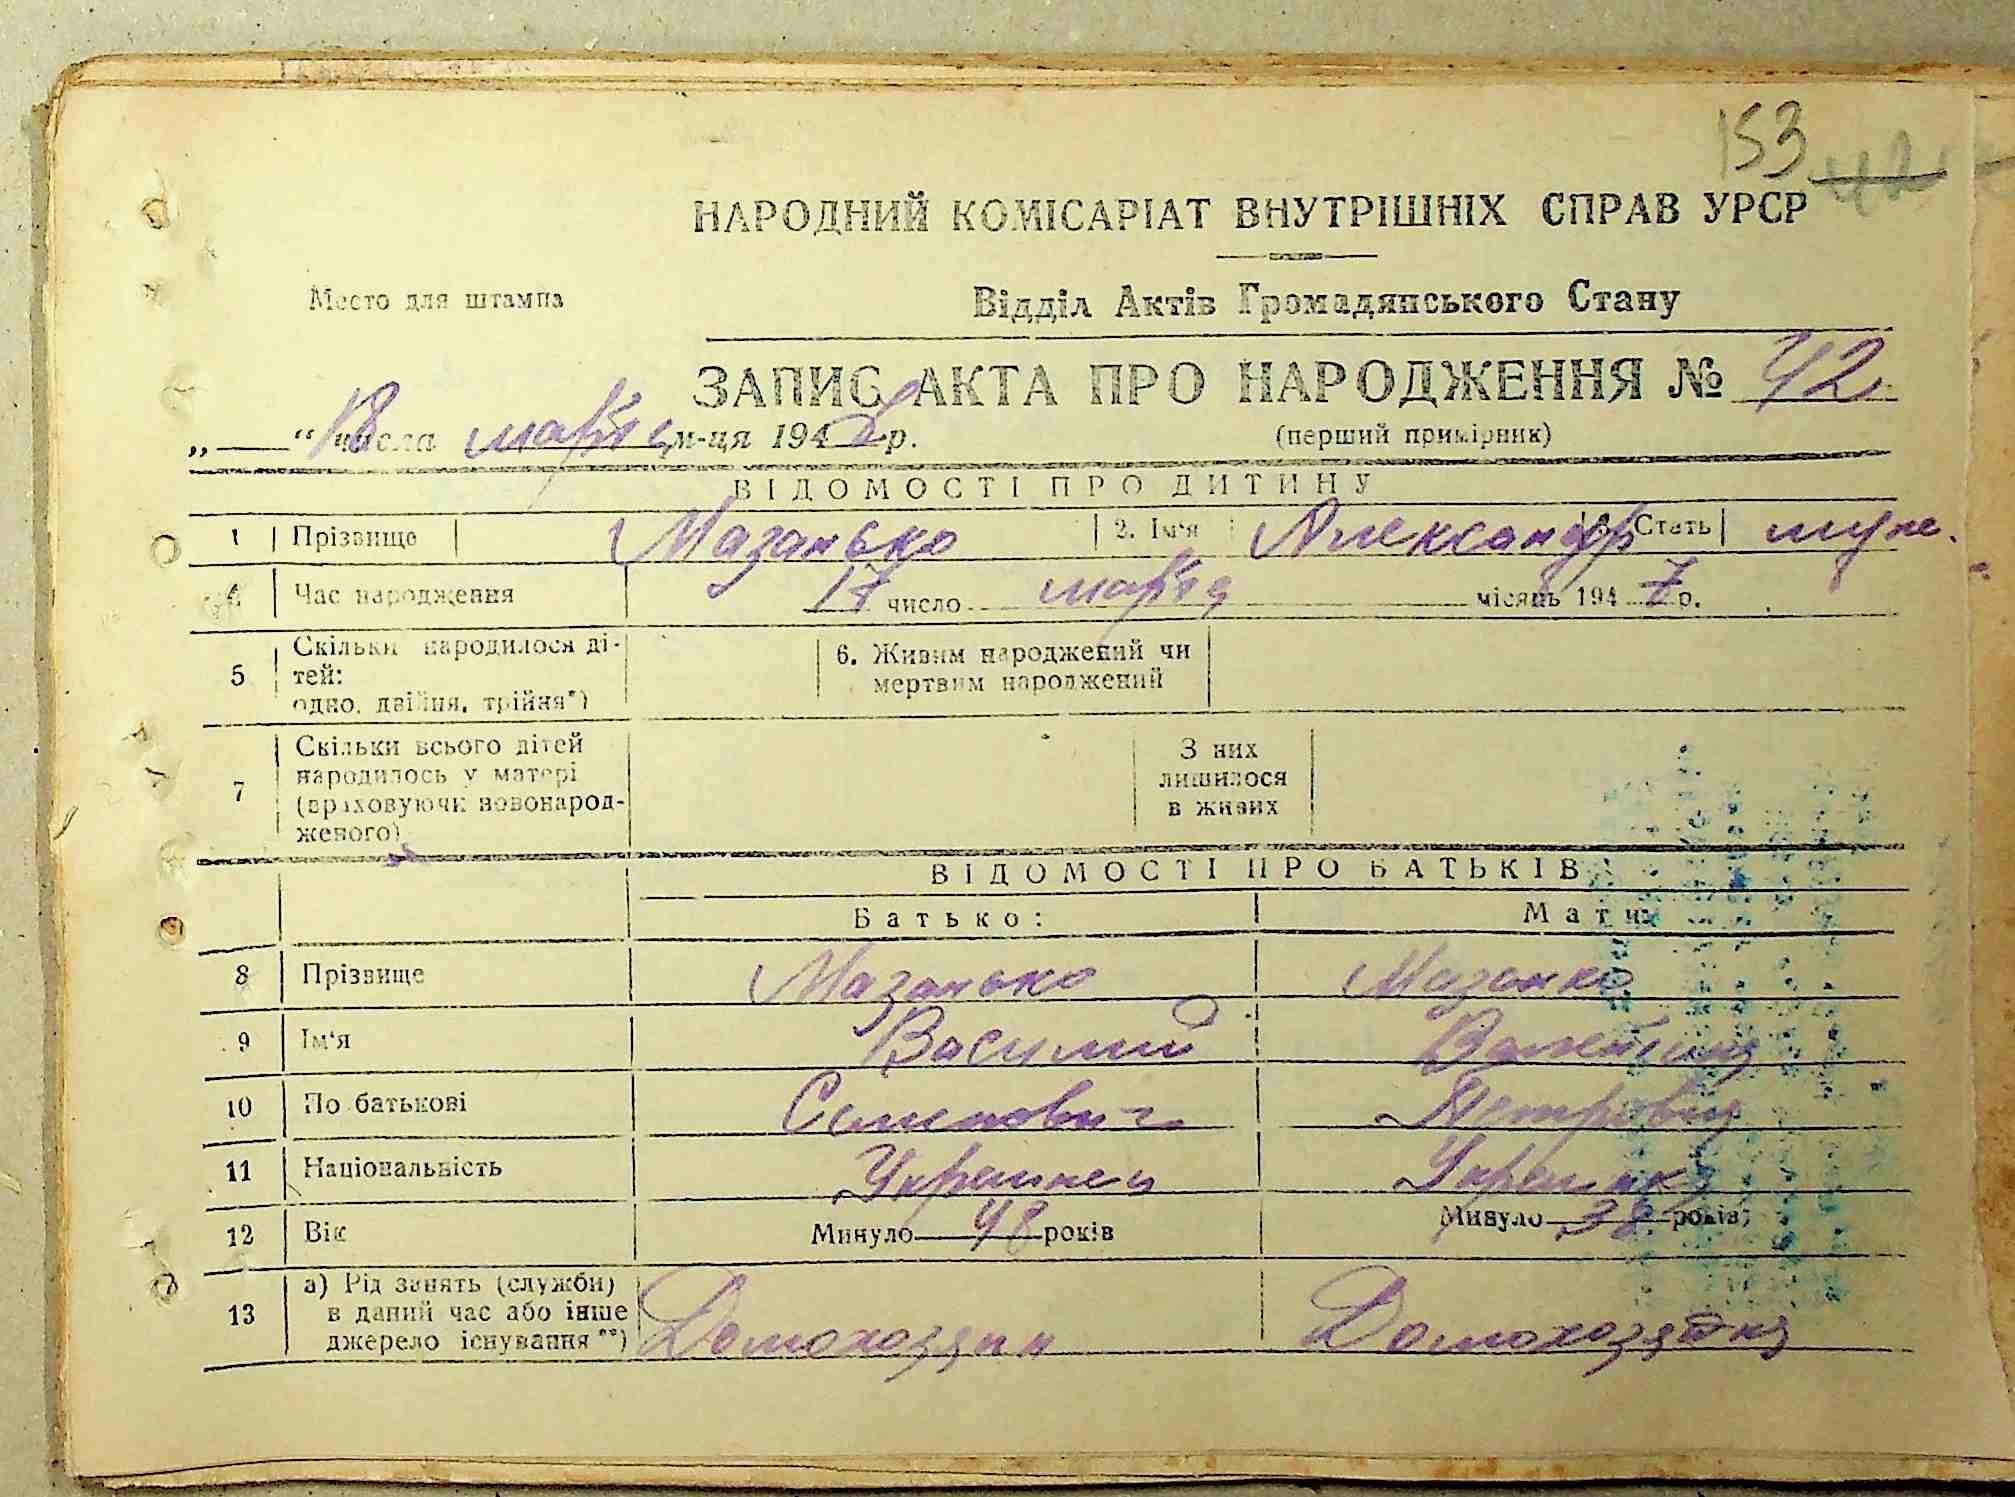 153 42
НАРОДНИЙ КОМІСАРІАТ ВНУТРІШНІХ СПРАВ УРСР
Место для штампа
Відділ Актів Громадянського Стану
ЗАПИС АКТА ПРО НАРОДЖЕННЯ № 42
„ “ 18 числа марта м-ця 194 р.
(перший примірник)
ВІДОМОСТІ ПРО ДИТИНУ
1 Прізвище Мазанько 2. Ім'я Александр 3. Стать муж.
4 Час народження 17 число марта місяць 1947 р.
5 Скільки народилося ді-
тей:
одно, двійня, трійня*)
6. Живим народжений чи
мертвим народжений
7 Скільки всього дітей
народилось у матері
(враховуючи новонарод-
женого)
З них
лишилося
в живих
ВІДОМОСТІ ПРО БАТЬКІВ
Батько: Мати:
8 Прізвище Мазанько Мазанко
9 Ім'я Василий Валентина
10 По батькові Семенович Петровна
11 Національність Украинец Украинка
12 Вік Минуло 48 років Минуло 38 років
13 а) Рід занять (служби)
в даний час або інше
джерело існування**)
Домохозяин Домохозяйка